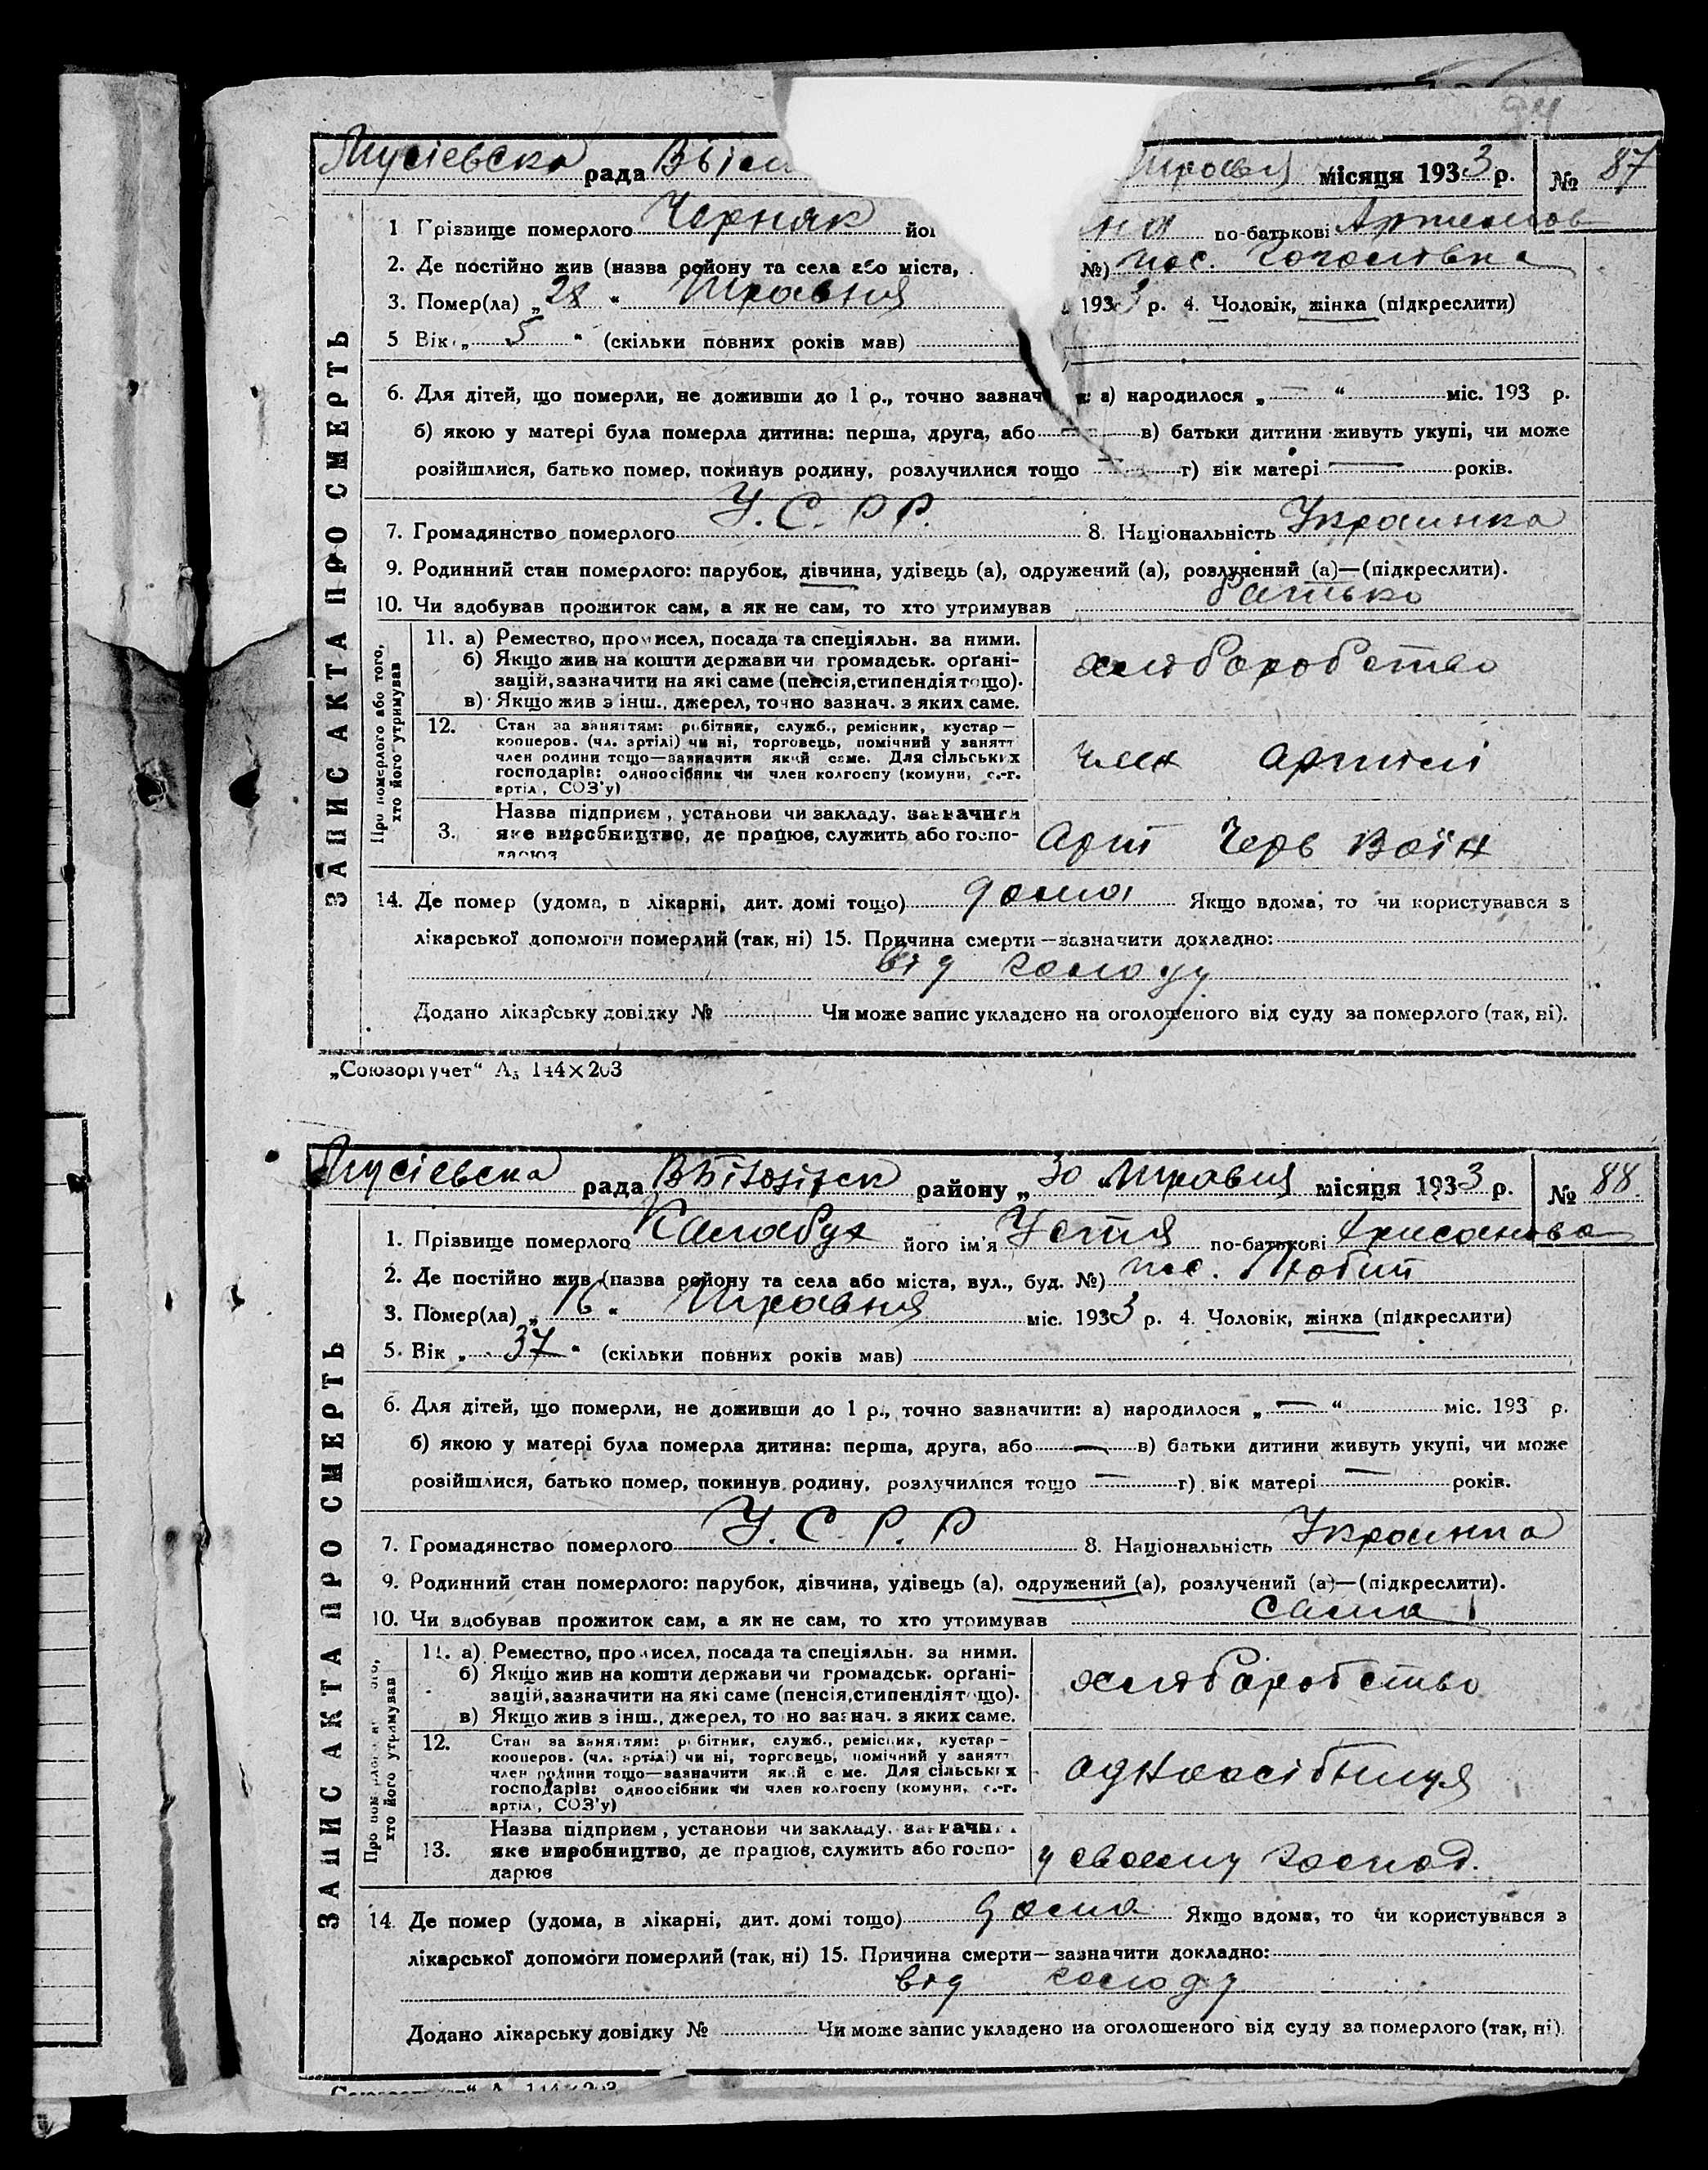 94
Мусіевска рада Вьісш Травня місяця 1933 р. № 87
1 Прізвище померлого Черняк йог на по-батькові Артемов
2. Де постійно жив (назва району та села або міста, №) пос. Гоголівка
3. Помер(ла) „28 “ Травня 1933 р. 4. Чоловік, жінка (підкреслити)
5 Вік „ 5 “ (скільки повних років мав)
6. Для дітей, що померли, не доживши до 1 р., точно зазнач а) народилося „ — “ міс. 193 р.
б) якою у матері була померла дитина: перша, друга, або — в) батьки дитини живуть укупі, чи може
розійшлися, батько помер, покинув родину, розлучилися тощо — г) вік матері — років.
7. Громадянство померлого У.С.Р.Р. 8. Національність Украинка
9. Родинний стан померлого: парубок, дівчина, удівець (а), одружений (а), розлучений (а)—(підкреслити).
10. Чи здобував прожиток сам, а як не сам, то хто утримував батько
Про померлого або того, хто його утримував
11. а) Ремество, промисел, посада та спеціяльн. за ними.
б) Якщо жив на кошти держави чи громадськ. органі-
зацій, зазначити на які саме (пенсія, стипендія тощо).
в) Якщо жив з інш., джерел, точно зазнач. з яких саме.
хліборобство
12. Стан за заняттям: робітник, служб., ремісник, кустар—
кооперов. (чл. артілі) чи ні, торговець, помічний у занятт
член родини тощо—зазначити який саме. Для сільських
господарів: одноосібник чи член колгоспу (комуни, с.-г.
артіл, СОЗ'у)
член артілі
3. Назва підприєм, установи чи закладу, зазначити
яке виробництво, де працює, служить або госпо-
дарює
Арт Черв Воїн
14. Де помер (удома, в лікарні, дит. домі тощо) дома Якщо вдома, то чи користувався з
лікарської допомоги померлий (так, ні) 15. Причина смерти—зазначити докладно:
від голоду
Додано лікарську довідку № Чи може запис укладено на оголошеного від суду за померлого (так, ні).
ЗАПИС АКТА ПРО СМЕРТЬ
„Союзоргучет“ А₅ 144×203
Мусіевска рада районy „30 “ Травня місяця 1933 р. № 88
1. Прізвище померлого Калабух його ім'я Устя по-батькові Хрисанова
2. Де постійно жив (назва району та села або міста, вул., буд. №) пос.
3. Помер(ла) „16 “ Травня міс. 1933 р. 4. Чоловік, жінка (підкреслити)
5. Вік „ 37 “ (скільки повних років мав)
6. Для дітей, що померли, не доживши до 1 р., точно зазначити: а) народилося „ — “ міс. 193 р.
б) якою у матері була померла дитина: перша, друга, або — в) батьки дитини живуть укупі, чи може
розійшлися, батько помер, покинув родину, розлучилися тощо — г) вік матері — років.
7. Громадянство померлого У.С.Р.Р 8. Національність Украинка
9. Родинний стан померлого: парубок, дівчина, удівець (а), одружений (а), розлучений (а)—(підкреслити).
10. Чи здобував прожиток сам, а як не сам, то хто утримував сама
хто його утримував
11. а) Ремество, промисел, посада та спеціяльн. за ними.
б) Якщо жив на кошти держави чи громадськ. органі-
зацій, зазначити на які саме (пенсія, стипендія тощо).
в) Якщо жив з інш., джерел, точно зазнач. з яких саме.
хліборобство
12. Стан за заняттям: робітник, служб., ремісник, кустар—
кооперов. (чл. артілі) чи ні, торговець, помічний у занятт
член родини тощо—зазначити який саме. Для сільських
господарів: одноосібник чи член колгоспу (комуни, с.-г.
артіл, СОЗ'у)
одноосібниця
13. Назва підприєм, установи чи закладу, зазначи
яке виробництво, де працює, служить або госпо-
дарює
у своему господ.
14. Де помер (удома, в лікарні, дит. домі тощо) дома Якщо вдома, то чи користувався з
лікарської допомоги померлий (так, ні) 15. Причина смерти—зазначити докладно:
від голоду
Додано лікарську довідку № Чи може запис укладено на оголошеного від суду за померлого (так, ні).
ЗАПИС АКТА ПРО СМЕРТЬ